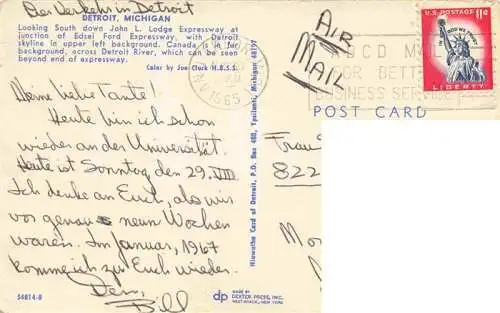 Der Verkehr in Detroit
DETROIT, MICHIGAN
Looking South down John L. Lodge Expressway at
junction of Edsel Ford Expressway, with Detroit
skyline in upper left background. Canada is in far
background, across Detroit River, which can be seen
beyond end of expressway.
Color by Joe Clark H.B.S.S.
Meine liebe Tante!
Heute bin ich schon
wieder an der Universität.
Heute ist Sonntag den 29.VIII
Ich denke an Euch, als wir
vor genau neun Wochen
waren. Im Januar, 1967
komme ich zu Euch wieder.
Dein,
Bill
54814-B
Hiawatha Card of Detroit, P.O. Box 480, Ypsilanti, Michigan 48197
dp
MADE BY
DEXTER PRESS, INC.
WEST NYACK, NEW YORK
AIR
MAIL
1965
U.S. POSTAGE 11¢
IN GOD WE TRUST
LIBERTY
BUSINESS SERVICE
POST CARD
Frau
822